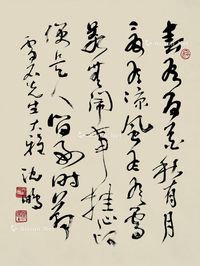 春有百花秋有月
夏有凉风冬有雪
若无闲事挂心头
便是人间好时节
雪石先生大雅 沈鹏